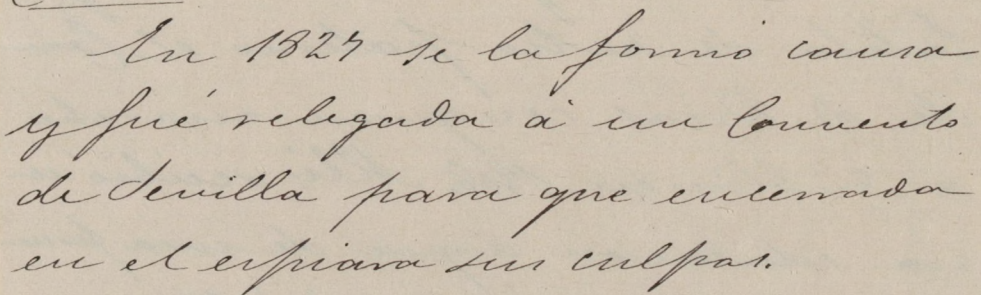 En 1827 se la formó causa
y fué relegada á un Convento
de Sevilla para que encerrada
en el espiara sus culpas.